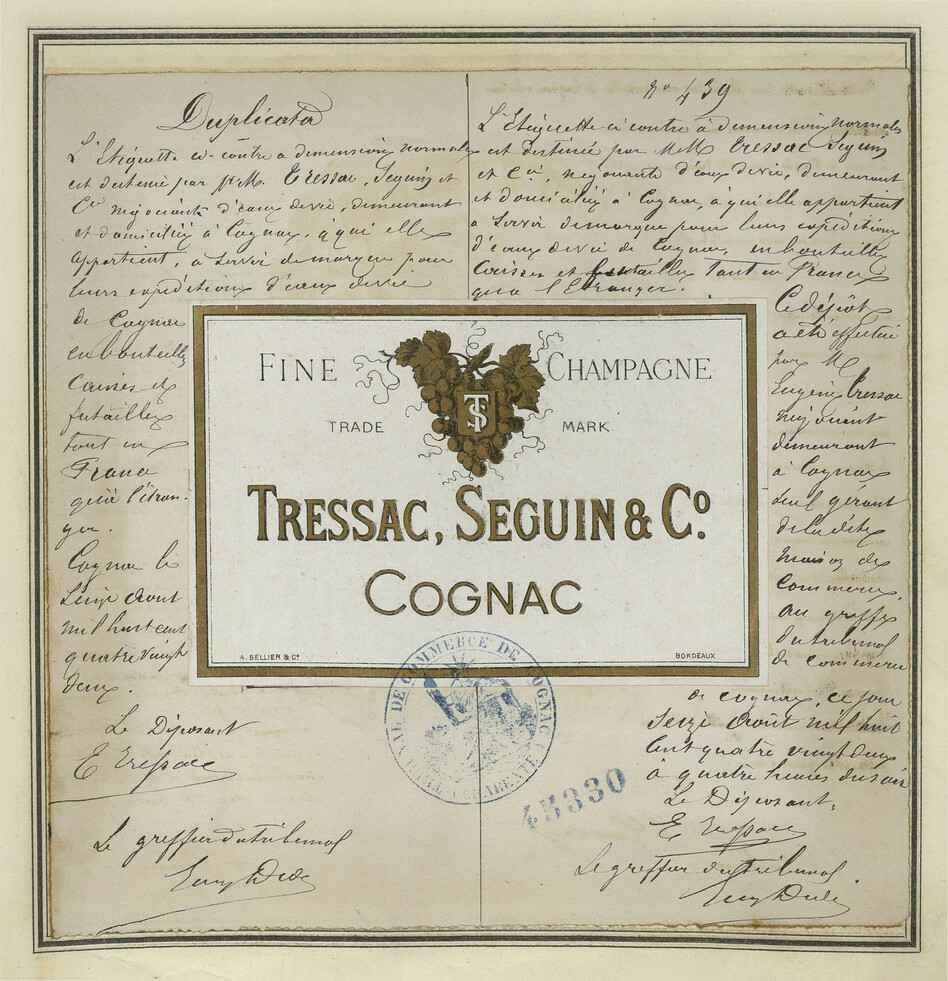 Duplicata
L'Etiquette ci-contre a dimension normale
est destinée par MM. Tressac, Seguin et
Cie négociants d'eaux devie, demeurant
et domiciliés à Cognac, à qui elle
appartient, a servir de marque pour
leurs expéditions d'eaux devie
de Cognac
en bouteilles
caisses et
futailles
tout en
France
qu'à l'étran-
ger.
Cognac le
Seize Aout
mil huit cent
quatre vingt
deux.
Le Déposant
E Tressac
Le greffier du tribunal
No 439
L'Etiquette ci contre à dimension normale
est destinée par MM Tressac Seguin
et Cie, négociants d'eaux devie, demeurant
et domiciliés à Cognac, à qui elle appartient
a servir de marque pour leurs expéditions
d'eaux devie de Cognac, en bouteilles
Caisses et futailles Tant en France
qu'a l'Etranger.
Ce dépôt
a été effectué
par M
Eugène Tressac
négociant
demeurant
à Cognac
seul gérant
de la dite
maison de
Commerce,
au greffe
du tribunal
de commerce
de cognac, ce jour
Seize Août mil huit
Cent quatre vingt deux
à quatre heures du soir
Le Déposant,
E Tressac
Le greffier du tribunal
FINE CHAMPAGNE
TS
TRADE MARK
TRESSAC, SEGUIN & Co.
COGNAC
A. BELLIER & Cie BORDEAUX
TRIBUNAL DE COMMERCE DE COGNAC (CHARENTE)
45330